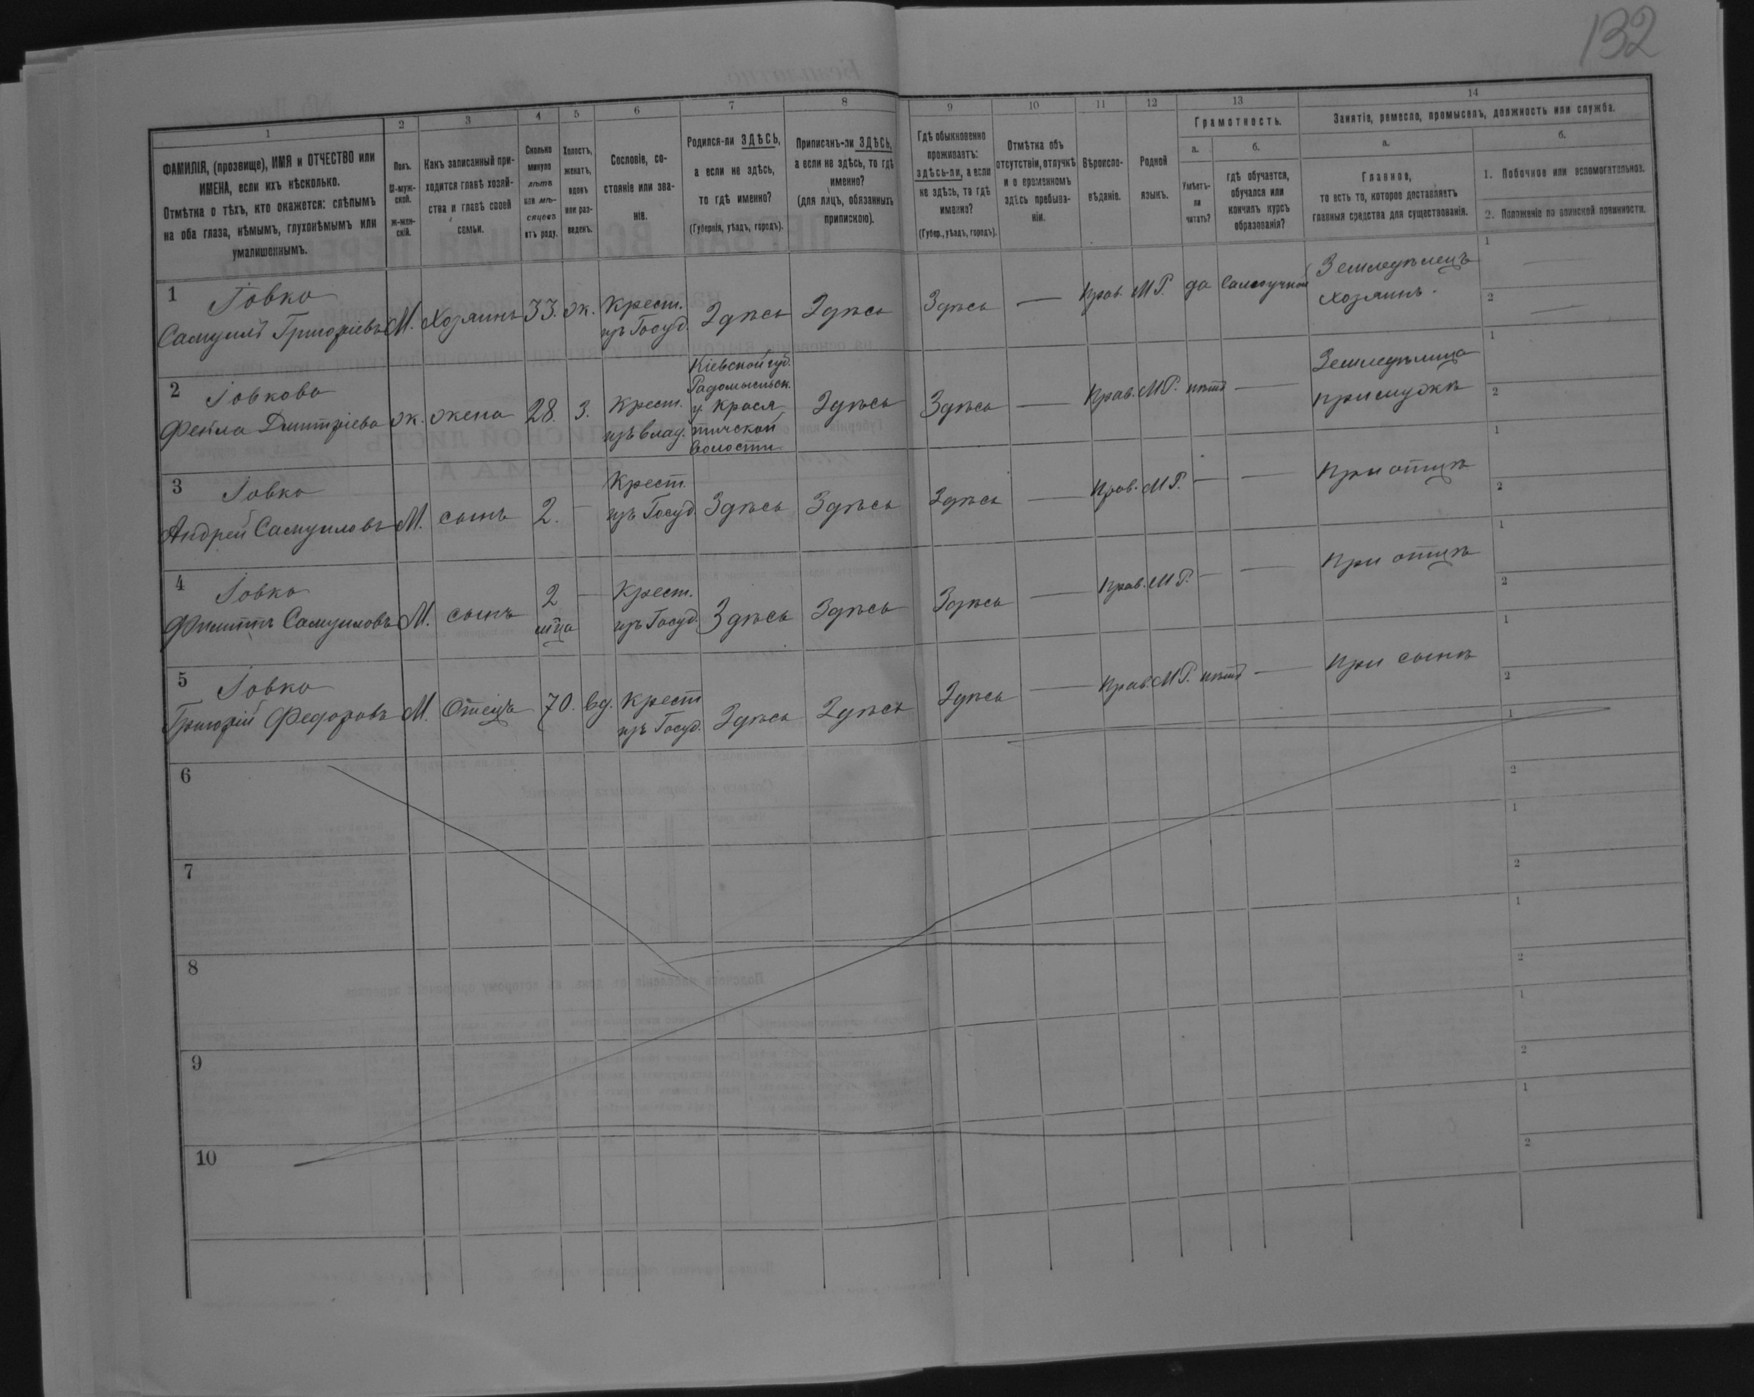 132
1
2
3
4
5
6
7
8
9
10
11
12
13
14
ФАМИЛІЯ, (прозвище), ИМЯ и ОТЧЕСТВО или
ИМЕНА, если ихъ нѣсколько.
Отмѣтка о тѣхъ, кто окажется: слѣпымъ
на оба глаза, нѣмымъ, глухонѣмымъ или
умалишеннымъ.
Полъ.
М-муж-
ской.
Ж-жен-
скій.
Какъ записанный при-
ходится главѣ хозяй-
ства и главѣ своей
семьи.
Сколько
минуло
лѣтъ
или мѣ-
сяцевъ
отъ роду.
Холостъ,
женатъ,
вдовъ
или раз-
веденъ.
Сословіе, со-
стояніе или зва-
ніе.
Родился-ли ЗДѢСЬ,
а если не здѣсь,
то гдѣ именно?
(Губернія, уѣздъ, городъ).
Приписанъ-ли ЗДѢСЬ,
а если не здѣсь, то гдѣ
именно?
(для лицъ, обязанныхъ
припискою).
Гдѣ обыкновенно
проживаетъ:
здѣсь-ли, а если
не здѣсь, то гдѣ
именно?
(Губер., уѣздъ, городъ).
Отмѣтка объ
отсутствіи, отлучкѣ
и о временномъ
здѣсь пребыва-
ніи.
Вѣроиспо-
вѣданіе.
Родной
языкъ.
Грамотность.
а.
Умѣетъ-
ли
читать?
б.
гдѣ обучается,
обучался или
кончилъ курсъ
образованія?
Занятіе, ремесло, промыселъ, должность или служба.
а.
Главное,
то есть то, которое доставляетъ
главныя средства для существованія.
б.
1. Побочное или вспомогательное.
2. Положеніе по воинской повинности.
1 Говко
Самуилъ Григоріевъ М. Хозяинъ 33. ж. Крест. изъ Госуд. Здѣсь Здѣсь Здѣсь — Прав. М.Р. да Самоучкой Земледѣлецъ хозяинъ. 1 — 2 —
2 Говкова
Дмитріева ж. жена 28. з. Крест. изъ влад. Кіевской губ.
Радомысльск.
у.
тичской
волости Здѣсь Здѣсь — Прав. М.Р. нѣтъ — при мужѣ 1 2
3 Говко
Андрей Самуиловъ М. сынъ 2. — Крест. изъ Госуд. Здѣсь Здѣсь Здѣсь — Прав. М.Р. — — При отцѣ 1 2
4 Говко
Филиппъ Самуиловъ М. сынъ 2 мца — Крест. изъ Госуд. Здѣсь Здѣсь Здѣсь — Прав. М.Р. — — При отцѣ 1 2
5 Говко
Григорій Федоровъ М. Отецъ 70. вд. Крест. изъ Госуд. Здѣсь Здѣсь Здѣсь — Прав. М.Р. нѣтъ — При сынѣ 1 2
6 1 2
7 1 2
8 1 2
9 1 2
10 1 2